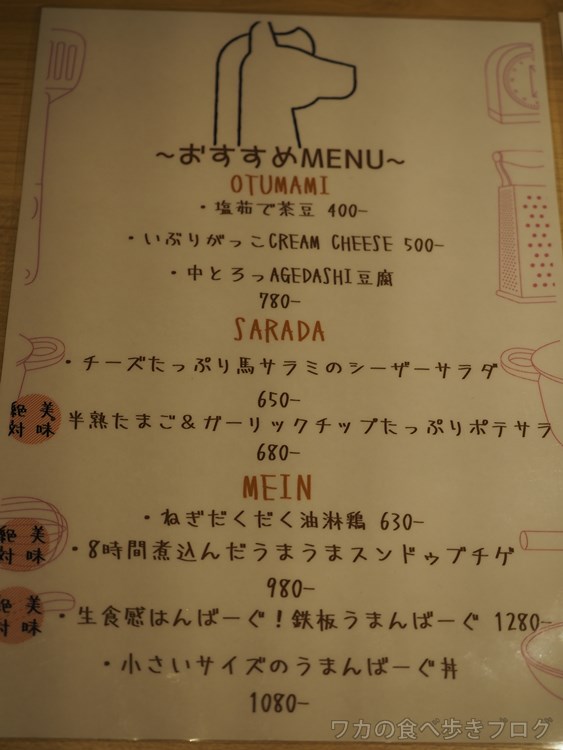 ~おすすめMENU~
OTUMAMI
・塩茹で茶豆 400-
・いぶりがっこCREAM CHEESE 500-
・中とろっAGEDASHI豆腐
780-
SARADA
・チーズたっぷり馬サラミのシーザーサラダ
650-
絶 美
対 味
半熟たまご&ガーリックチップたっぷりポテサラ
680-
MEIN
・ねぎだくだく油淋鶏 630-
絶 美
対 味
・8時間煮込んだうまうまスンドゥブチゲ
980-
絶 美
対 味
・生食感はんばーぐ!鉄板うまんばーぐ 1280-
・小さいサイズのうまんばーぐ丼
1080-
ワカの食べ歩きブログ